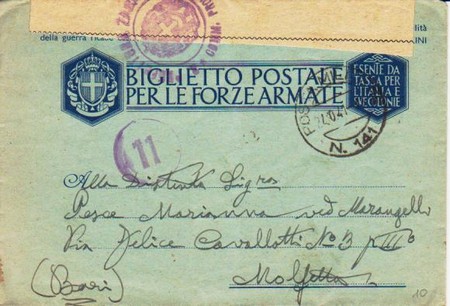 della guerra
BIGLIETTO POSTALE
PER LE FORZE ARMATE
ESENTE DA
TASSA PER
L'ITALIA E
SVE COLONIE
POSTA
N. 141
11
Alla Distinta Sigra
Pesce Marianna ved Marangelli
Via Felice Cavallotti No 3 pIIIo
Molfetta
(Bari)
10